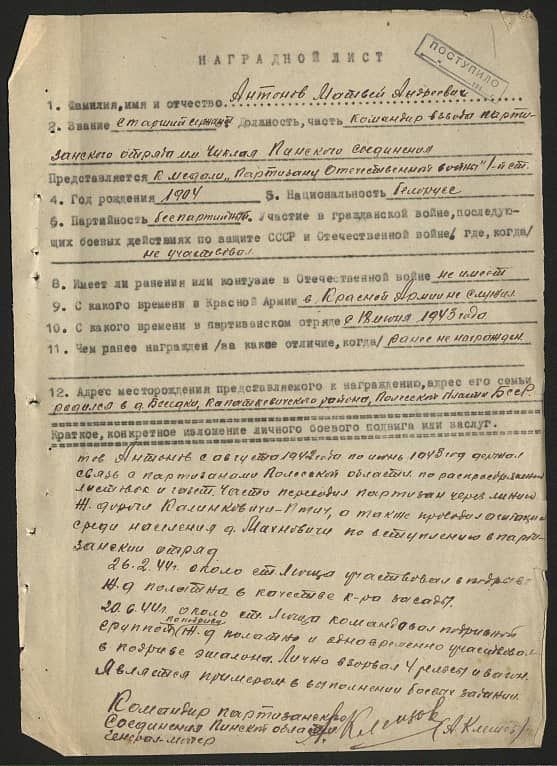 ПОСТУПИЛО
НАГРАДНОЙ ЛИСТ
1. Фамилия, имя и отчество. Антонов Матвей Андреевич
2. Звание старший сержант Должность, часть командир взвода парти-
занского отряда им Чуклая Пинского Соединения
Представляется к медали „Партизану Отечественной войны" 1-й ст.
4. Год рождения 1904 5. Национальность белорусс
6. Партийность беспартийный Участие в гражданской войне, последую-
щих боевых действиях по защите СССР и Отечественной войне/ где, когда/
не участвовал
8. Имеет ли ранения или контузие в Отечественной войне не имеет
9. С какого времени в Красной Армии в Красной Армии не служил
10. С какого времени в партизанском отряде с 18 июня 1943 года
11. Чем ранее награжден /за какое отличие, когда/ ранее не награжден
12. Адрес месторождения представляемого к награждению, адрес его семьи
родился в д. Беседки, Капаткевичского района, Полесской области БССР.
Краткое, конкретное изложение личного боевого подвига или заслуг.
тов Антонов с августа 1942 года по июнь 1943 год держал
связь с партизанами Полесской области по распространению
листовок и газет. Часто переводил партизан через линию
Ж. дороги Калинковичи-Птич, а также проводил агитацию
среди населения д. Махновичи по вступлению в парти-
занский отряд
26.2.44г. около ст. участвовал в подрыве
Ж.д полотна в качестве к-ра засады.
20.6.44г. около ст. командовал подрывной
группой по подрыву Ж.д полотно и одновременно участвовал
в подрыве эшалона. Лично взорвал 4 рельсы и вагон.
Является примером в выполнении боевых заданий.
Командир партизанского
Соединения Пинской области
Генерал-майор Клещов (А. Клещов)